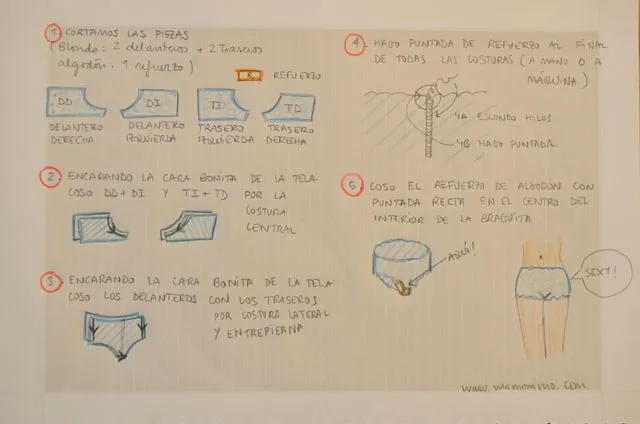 1. CORTAMOS LAS PIEZAS
(Blonda: 2 delanteros + 2 Traseros
algodón. 1 refuerzo)
R REFUERZO
DD DI TI TD
DELANTERO DERECHA
DELANTERO IZQUIERDA
TRASERO IZQUIERDA
TRASERO DERECHA
2. ENCARANDO LA CARA BONITA DE LA TELA
COSO DD+DI Y TI+TD POR LA
COSTURA
CENTRAL
3. ENCARANDO LA CARA BONITA DE LA TELA
COSO LOS DELANTEROS CON LOS TRASEROS
POR COSTURA LATERAL
Y ENTREPIERNA
4 HAGO PUNTADA DE REFUERZO AL FINAL
DE TODAS LAS COSTURAS (A MANO O A
MÁQUINA)
4A ESCONDO HILOS
4B HAGO PUNTADA
5 COSO EL REFUERZO DE ALGODÓN CON
PUNTADA RECTA EN EL CENTRO DEL
INTERIOR DE LA BRAGUITA
AQUÍ!
SEXY!